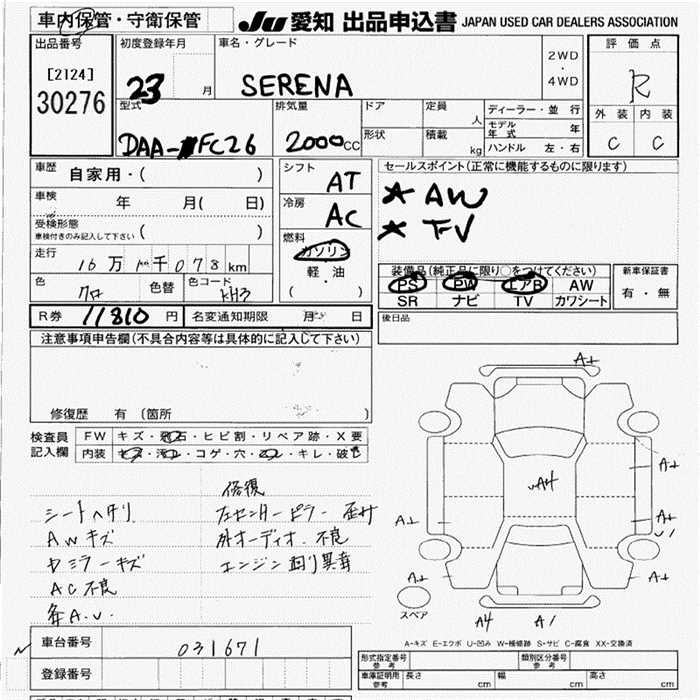 車内保管・守衛保管
JU 愛知 出品申込書 JAPAN USED CAR DEALERS ASSOCIATION
出品番号
[2124]
30276
初度登録年月
23 月
車名・グレード
SERENA
2WD
・
4WD
評価点
R
外装 内装
C C
型式
DAA-FC26
排気量
2000cc
ドア
形状
定員 人
積載 kg
ディーラー・並行
モデル年式 年
ハンドル 左・右
車歴
自家用・( )
車検
年 月( 日)
受検形態
車検付きのみ記入して下さい ( )
走行
16万 千078km
色
クロ
色替
色コード
KH3
シフト
AT
冷房
AC
燃料
ガソリン
軽油
( ・ )
セールスポイント(正常に機能するものに限ります)
★ AW
★ TV
装備品(純正品に限り○をつけてください)
PS PW エアB AW
SR ナビ TV カワシート
新車保証書
有・無
R券 11810 円
名変通知期限 月 日
後日品
注意事項申告欄(不具合内容等は具体的に記入して下さい)
修復歴 有(箇所 )
検査員
記入欄
FW キズ・飛石・ヒビ割・リペア跡・X要
内装 キズ・汚レ・コゲ・穴・ ・キレ・破レ
修復
シートヘタリ
AWキズ
ドミラーキズ
AC不良
各A.U.
外オーディオ不良
エンジン回り異音
A+
A+
A4
A+
A+
U1
A+
A+
A4
A1
スペア
A-キズ E-エクボ U-凹み W-補修跡 S-サビ C-腐食 XX-交換済
車台番号
031671
登録番号
形式指定番号
参考
類別区分番号
参考
車庫証明用
参考
長さ cm 幅 cm 高さ cm